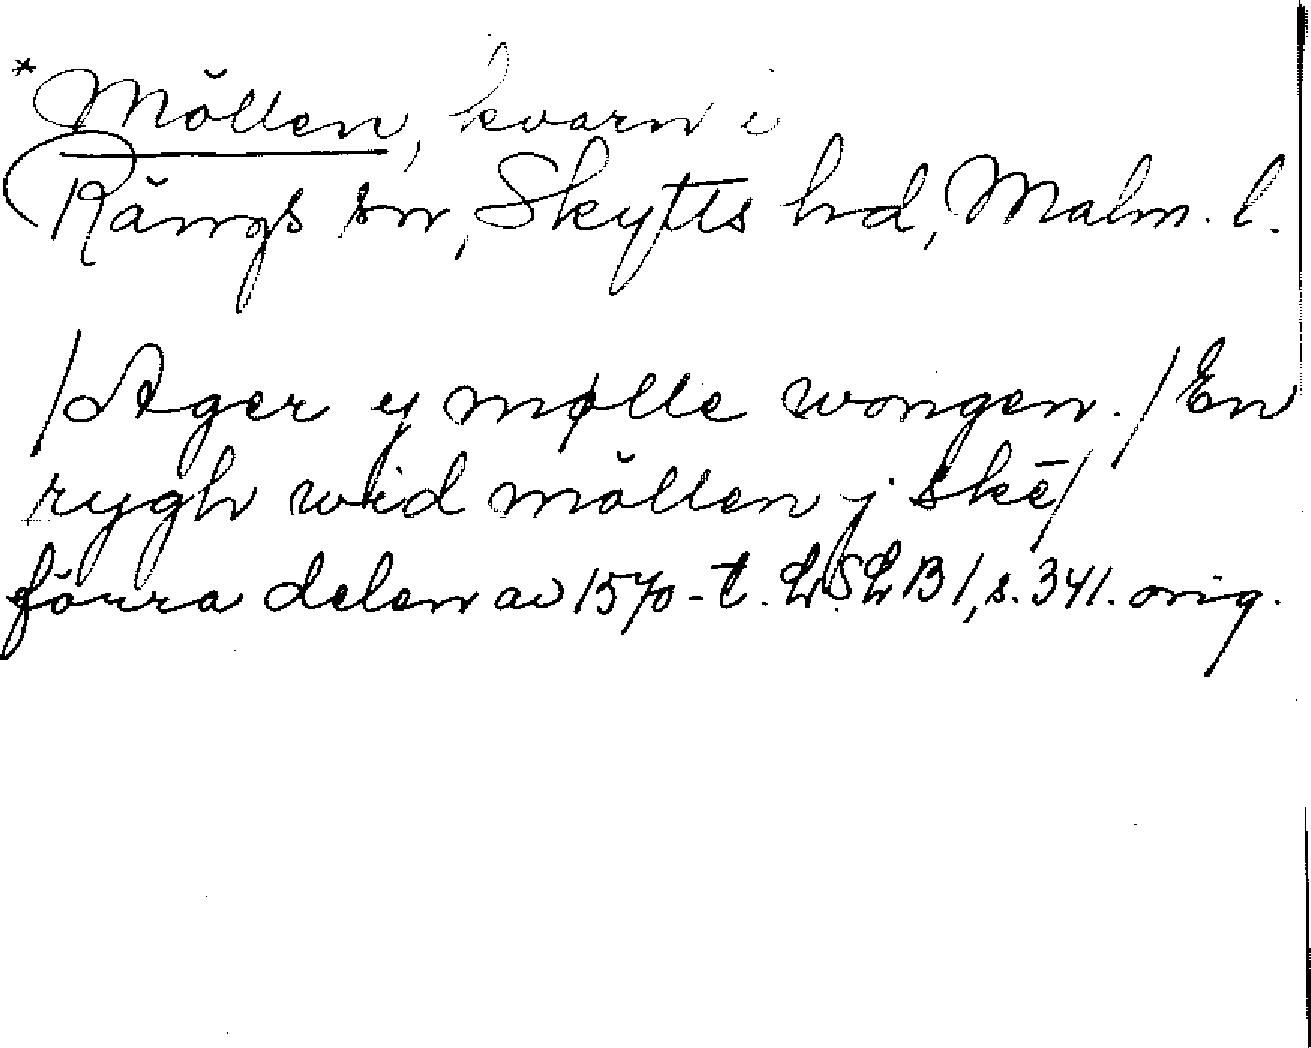 *Möllen, kvarn i
Rängs sn, Skytts hd, Malm. l.
/Ager y mølle wongen./En
rygh wid möllen j skē/
förra delen av 1570-t. LSLB1, s. 341. orig.